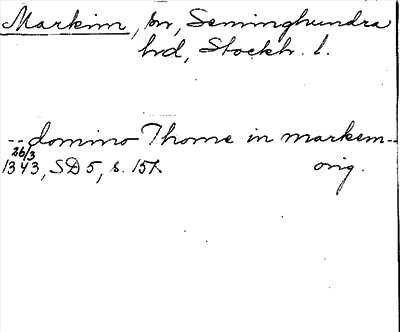 Markim, sn, Seminghundra
hd, Stockh. l.
-- domino Thome in markem --
26/3
1343, SD 5, s. 157 orig.